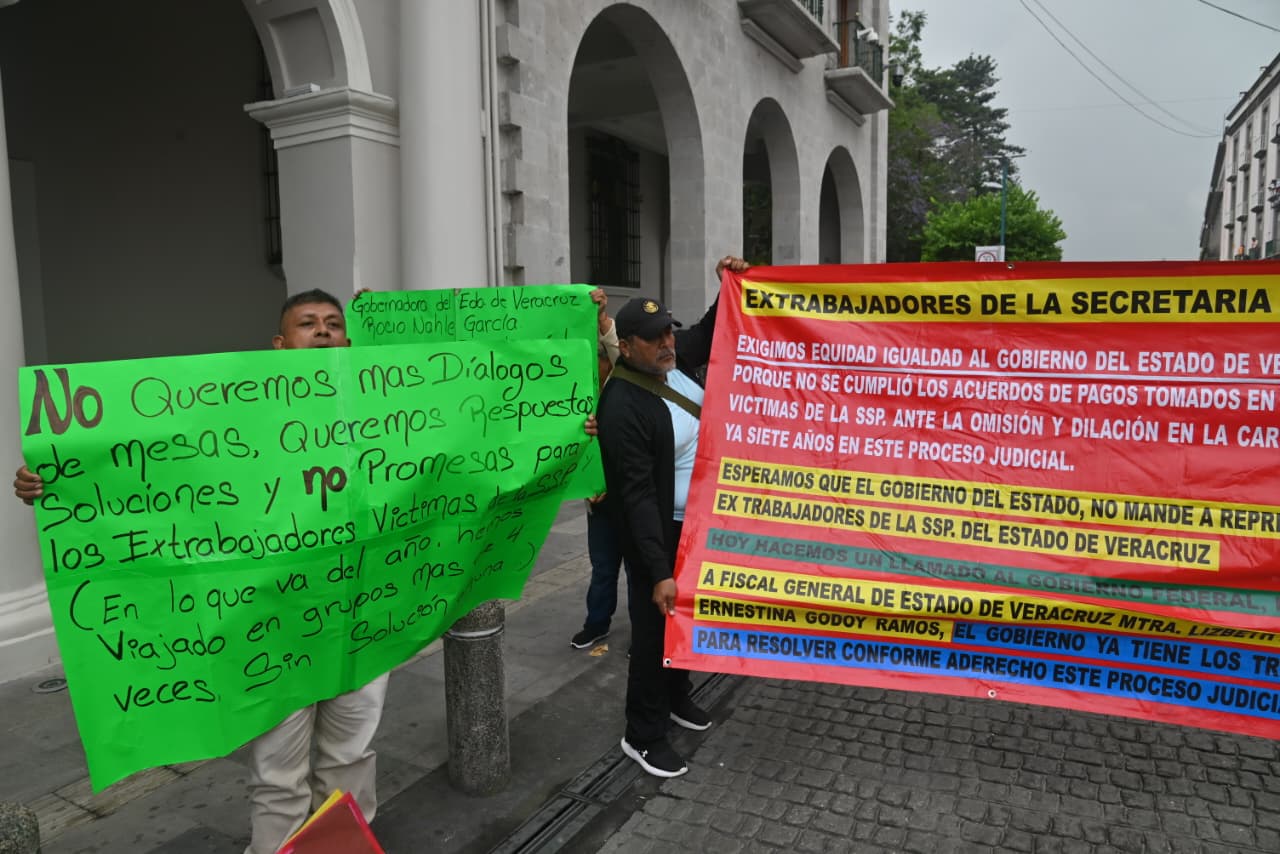 No Queremos mas Díalogos
de mesas, Queremos Respuestas
Soluciones y no Promesas para
los Extrabajadores Victimas de la SSP y
(En lo que va del año, hemos
Viajado en grupos mas de 4
veces, Sin Solución ninguna.)
Gobernadora del Edo de Veracruz
Rocio Nahle García
EXTRABAJADORES DE LA SECRETARIA
EXIGIMOS EQUIDAD IGUALDAD AL GOBIERNO DEL ESTADO DE VE
PORQUE NO SE CUMPLIÓ LOS ACUERDOS DE PAGOS TOMADOS EN
VICTIMAS DE LA SSP. ANTE LA OMISIÓN Y DILACIÓN EN LA CAR
YA SIETE AÑOS EN ESTE PROCESO JUDICIAL.
ESPERAMOS QUE EL GOBIERNO DEL ESTADO, NO MANDE A REPRI
EX TRABAJADORES DE LA SSP. DEL ESTADO DE VERACRUZ
HOY HACEMOS UN LLAMADO AL GOBIERNO FEDERAL,
A FISCAL GENERAL DE ESTADO DE VERACRUZ MTRA. LIZBETH
ERNESTINA GODOY RAMOS, EL GOBIERNO YA TIENE LOS TR
PARA RESOLVER CONFORME ADERECHO ESTE PROCESO JUDICIA